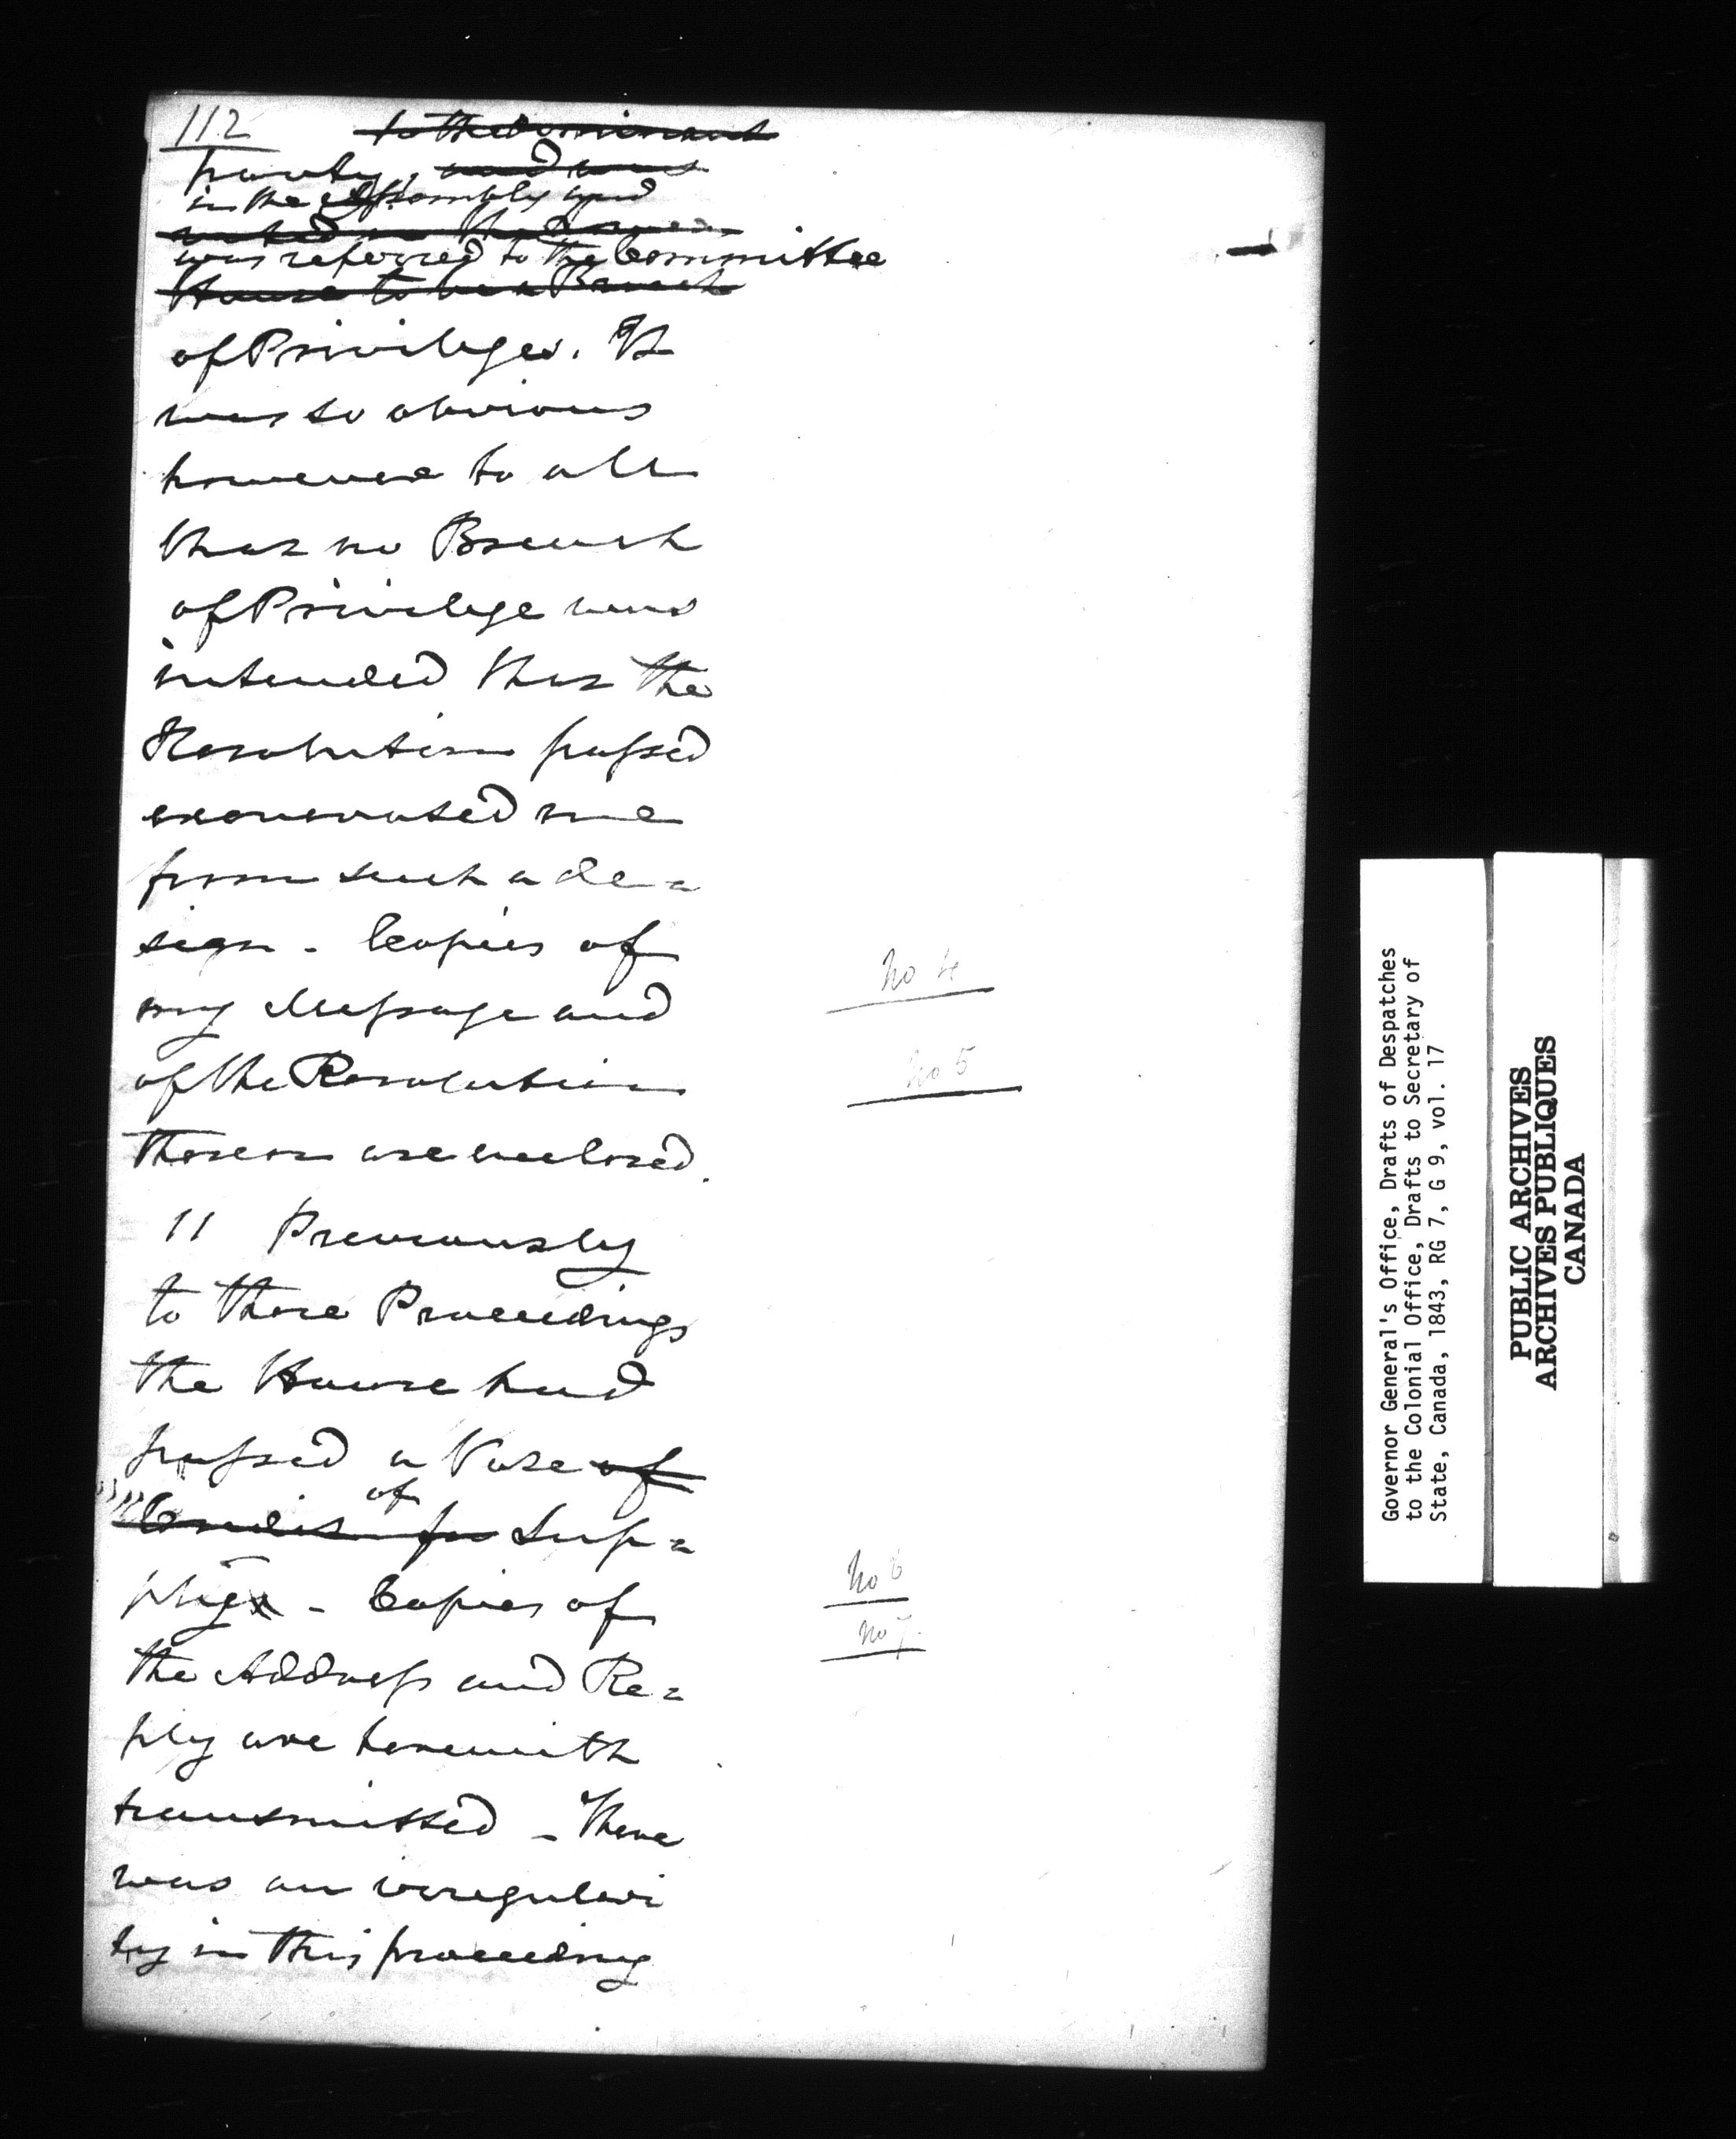 112
to the dominant
party, and was
in the Assembly and
voted in the
was referred to the Committee
House to be a Breach
of Privileges. It
was so obvious
however to all
that no Breach
of Privilege was
intended that the
Resolution passed
exonerated me
from such a de=
sign - Copies of
No 4
my Message and
of the Resolution
No 5
thereon are enclosed.
11 Previously
to these Proceedings
the House had
passed a Vote of
of
Credit for Sup=
plies - Copies of
No 6
No 7
the Address and Re=
ply are herewith
transmitted - There
was an irregulari
ty in this proceeding
Governor General's Office, Drafts of Despatches
to the Colonial Office, Drafts to Secretary of
State, Canada, 1843, RG 7, G 9, vol. 17
PUBLIC ARCHIVES
ARCHIVES PUBLIQUES
CANADA